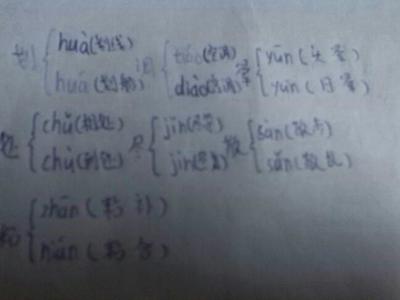 划 huà(划线) 调 tiáo(空调) 晕 yūn(头晕)
huá(划船) diào yùn(日晕)
处 chǔ(相处) 尽 jǐn 散 sàn(散步)
chù(到处) jìn sǎn(散乱)
粘 zhān(粘补)
nián(粘合)